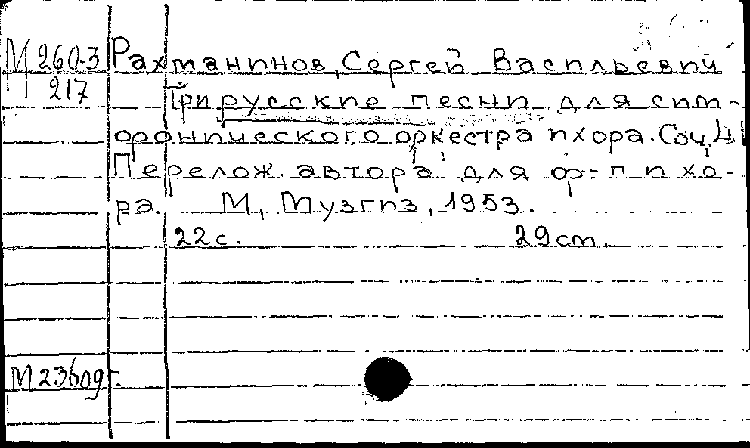 М260-3 Рахманинов, Сергей Васильевич
217 Три русские песни для сим-
фонического оркестра и хора. Соч. 41
Перелож. автора для ф-п и хо-
ра. М, Музгиз, 1953.
22с. 29см.
М23609г.